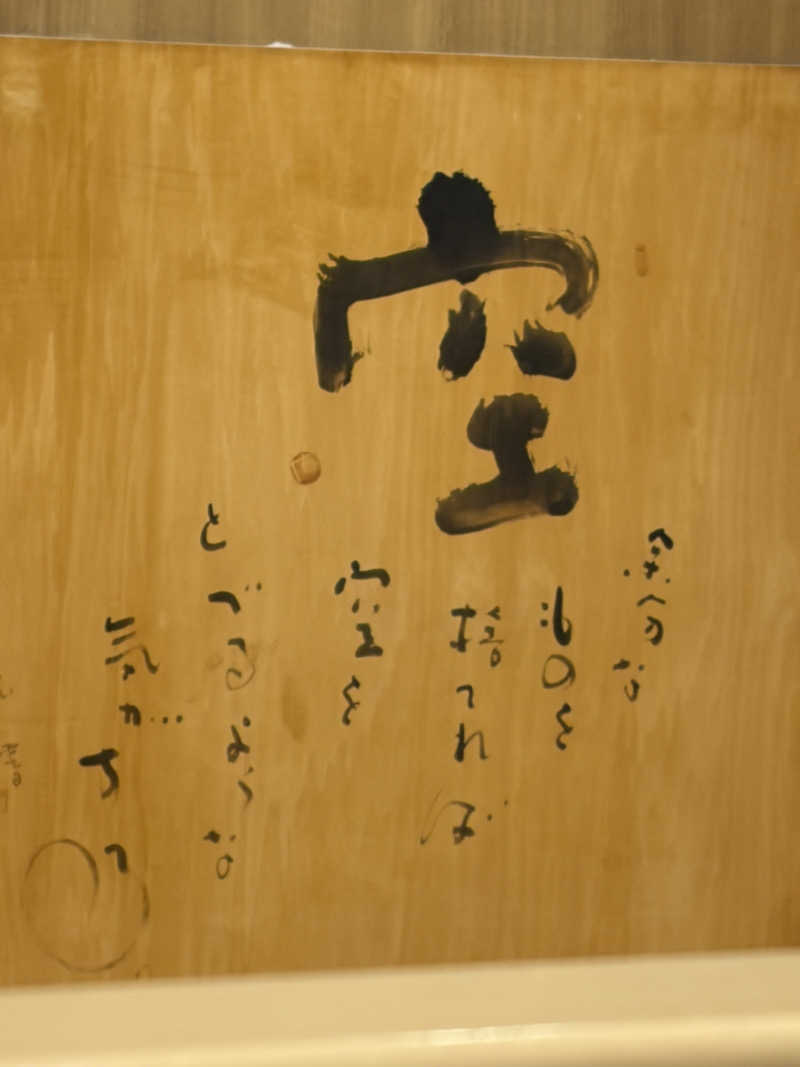 空
な
ものを
捨てれば
空を
とべるような
気が